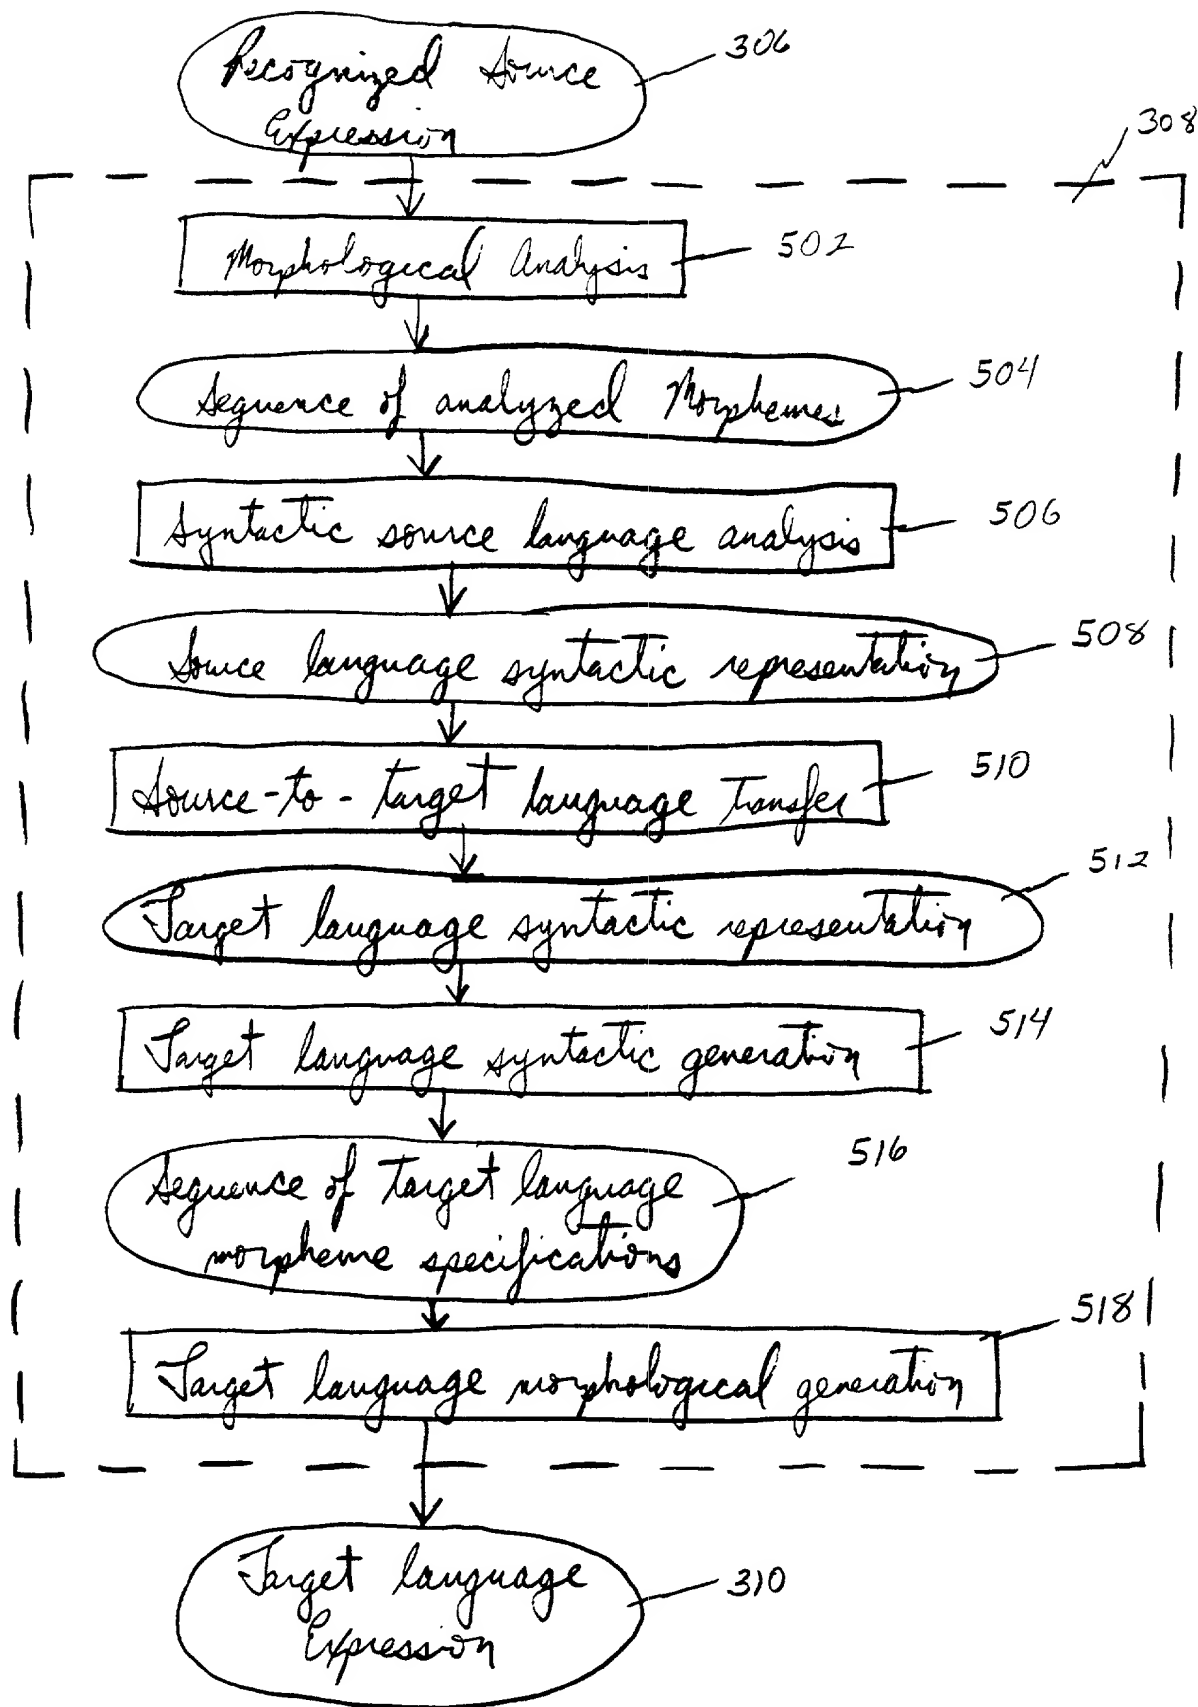 Recognized Source
Expression
306
308
Morphological Analysis
502
Sequence of analyzed Morphemes
504
Syntactic source language analysis
506
Source language syntactic representation
508
Source-to-target language Transfer
510
Target language syntactic representation
512
Target language syntactic generation
514
Sequence of target language
morpheme specifications
516
Target language morphological generation
518
Target language
Expression
310